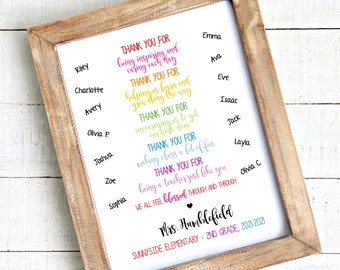 THANK YOU FOR
being inspiring and
caring each day
THANK YOU FOR
helping us learn and
grow along the way
THANK YOU FOR
encouraging us to get
our work done
THANK YOU FOR
making class a lot of fun
THANK YOU FOR
being a teacher just like you
WE ALL FEEL blessed THROUGH AND THROUGH
Mrs. Humblefield
SUNNYSIDE ELEMENTARY - 2ND GRADE, 2020-2021
Riley
Charlotte
Avery
Olivia P.
Joshua
Zoe
Sophia
Emma
Ava
Eve
Isaac
Jack
Layla
Olivia C.